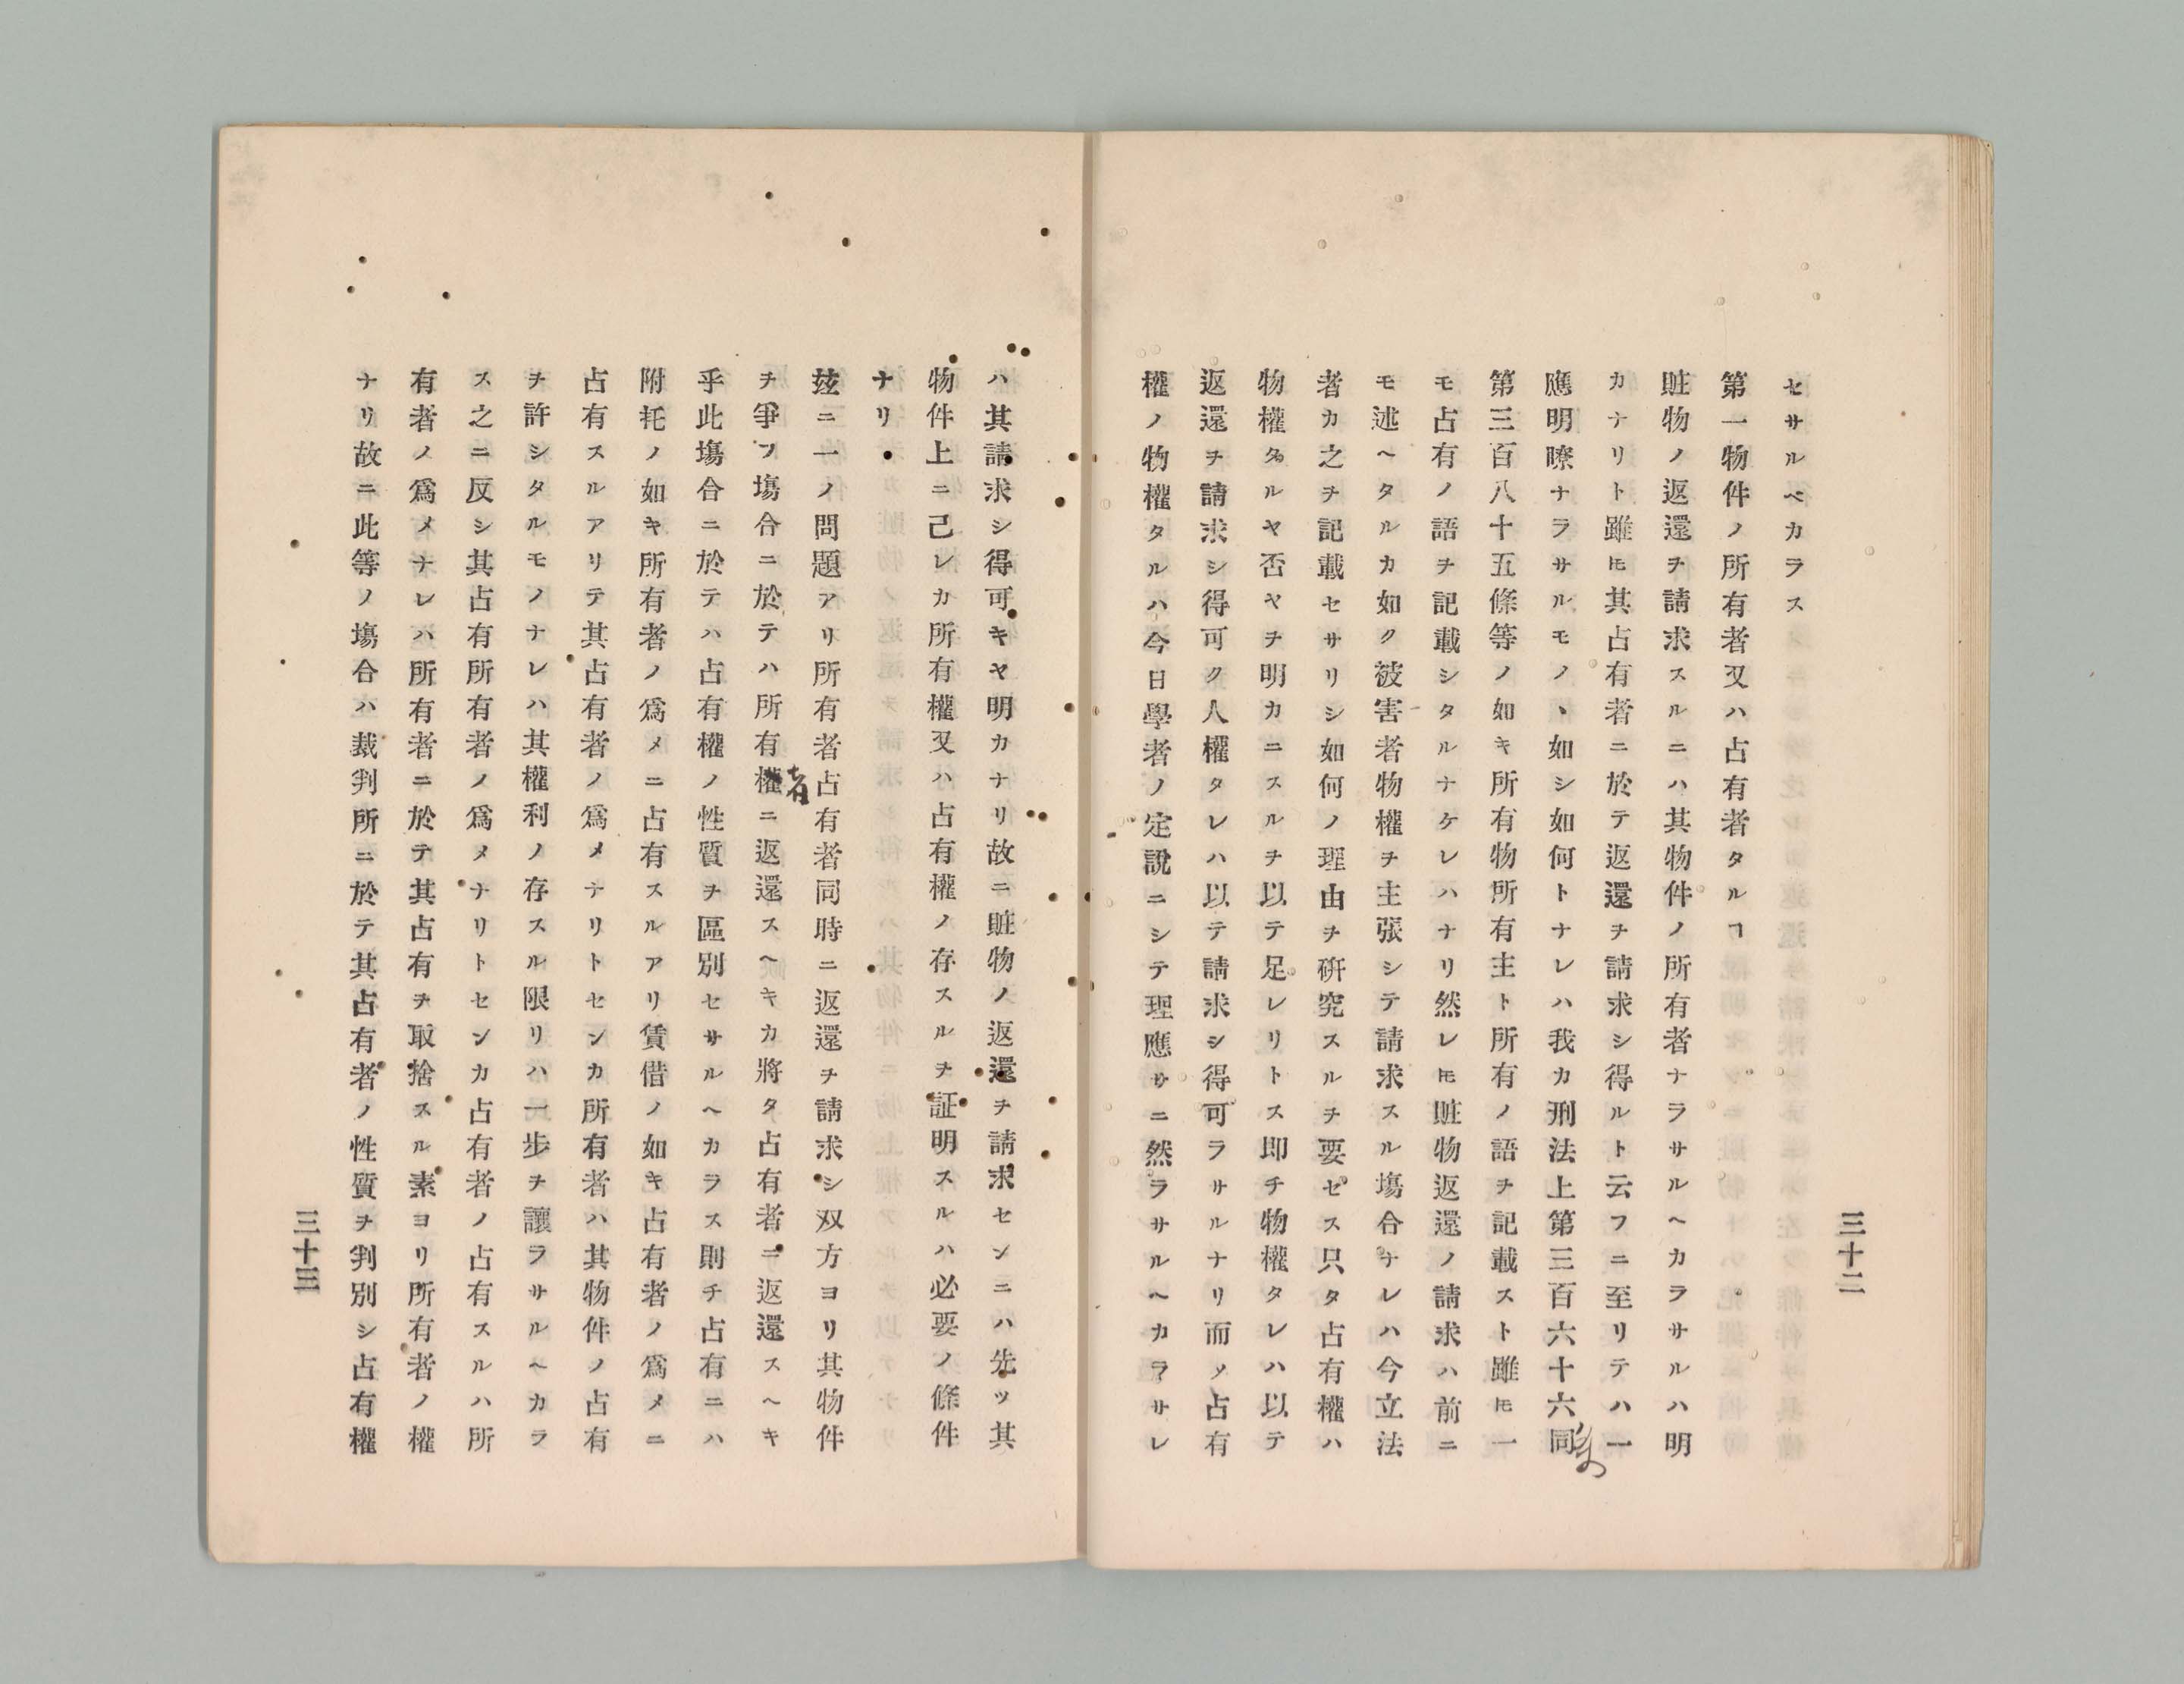 三十二
セサルベカラス
第一物件ノ所有者又ハ占有者タルヿ
賍物ノ返還ヲ請求スルニハ其物件ノ所有者ナラサルヘカラサルハ明
カナリト雖𪜈其占有者ニ於テ返還ヲ請求シ得ルト云フニ至リテハ一
應明瞭ナラサルモノヽ如シ如何トナレハ我カ刑法上第三百六十六同
第三百八十五條等ノ如キ所有物所有主ト所有ノ語ヲ記載スト雖𪜈一
モ占有ノ語ヲ記載シタルナケレハナリ然レ𪜈賍物返還ノ請求ハ前ニ
モ述ヘタルカ如ク被害者物權ヲ主張シテ請求スル塲合ナレハ今立法
者カ之ヲ記載セサリシ如何ノ理由ヲ硏究スルヲ要セス只タ占有權ハ
物權タルヤ否ヤヲ明カニスルヲ以テ足レリトス即チ物權タレハ以テ
返還ヲ請求シ得可ク人權タレハ以テ請求シ得可ラサルナリ而メ占有
權ノ物權タルハ今日學者ノ定說ニシテ理應サニ然ラサルヘカラサレ
ハ其請求シ得可キヤ明カナリ故ニ賍物ノ返還ヲ請求センニハ先ツ其
物件上ニ己レカ所有權又ハ占有權ノ存スルヲ証明スルハ必要ノ條件
ナリ
玆ニ一ノ問題アリ所有者占有者同時ニ返還ヲ請求シ双方ヨリ其物件
ヲ爭フ塲合ニ於テハ所有權ニ返還スヘキカ將タ占有者ニ返還スヘキ
者
乎此塲合ニ於テハ占有權ノ性質ヲ區別セサルヘカラス則チ占有ニハ
附托ノ如キ所有者ノ爲メニ占有スルアリ賃借ノ如キ占有者ノ爲メニ
占有スルアリテ其占有者ノ爲メナリトセンカ所有者ハ其物件ノ占有
ヲ許シタルモノナレハ其權利ノ存スル限リハ一步ヲ讓ラサルヘカラ
ス之ニ反シ其占有所有者ノ爲メナリトセンカ占有者ノ占有スルハ所
有者ノ爲メナレハ所有者ニ於テ其占有ヲ取捨スル素ヨリ所有者ノ權
ナリ故ニ此等ノ塲合ハ裁判所ニ於テ其占有者ノ性質ヲ判別シ占有權
三十三